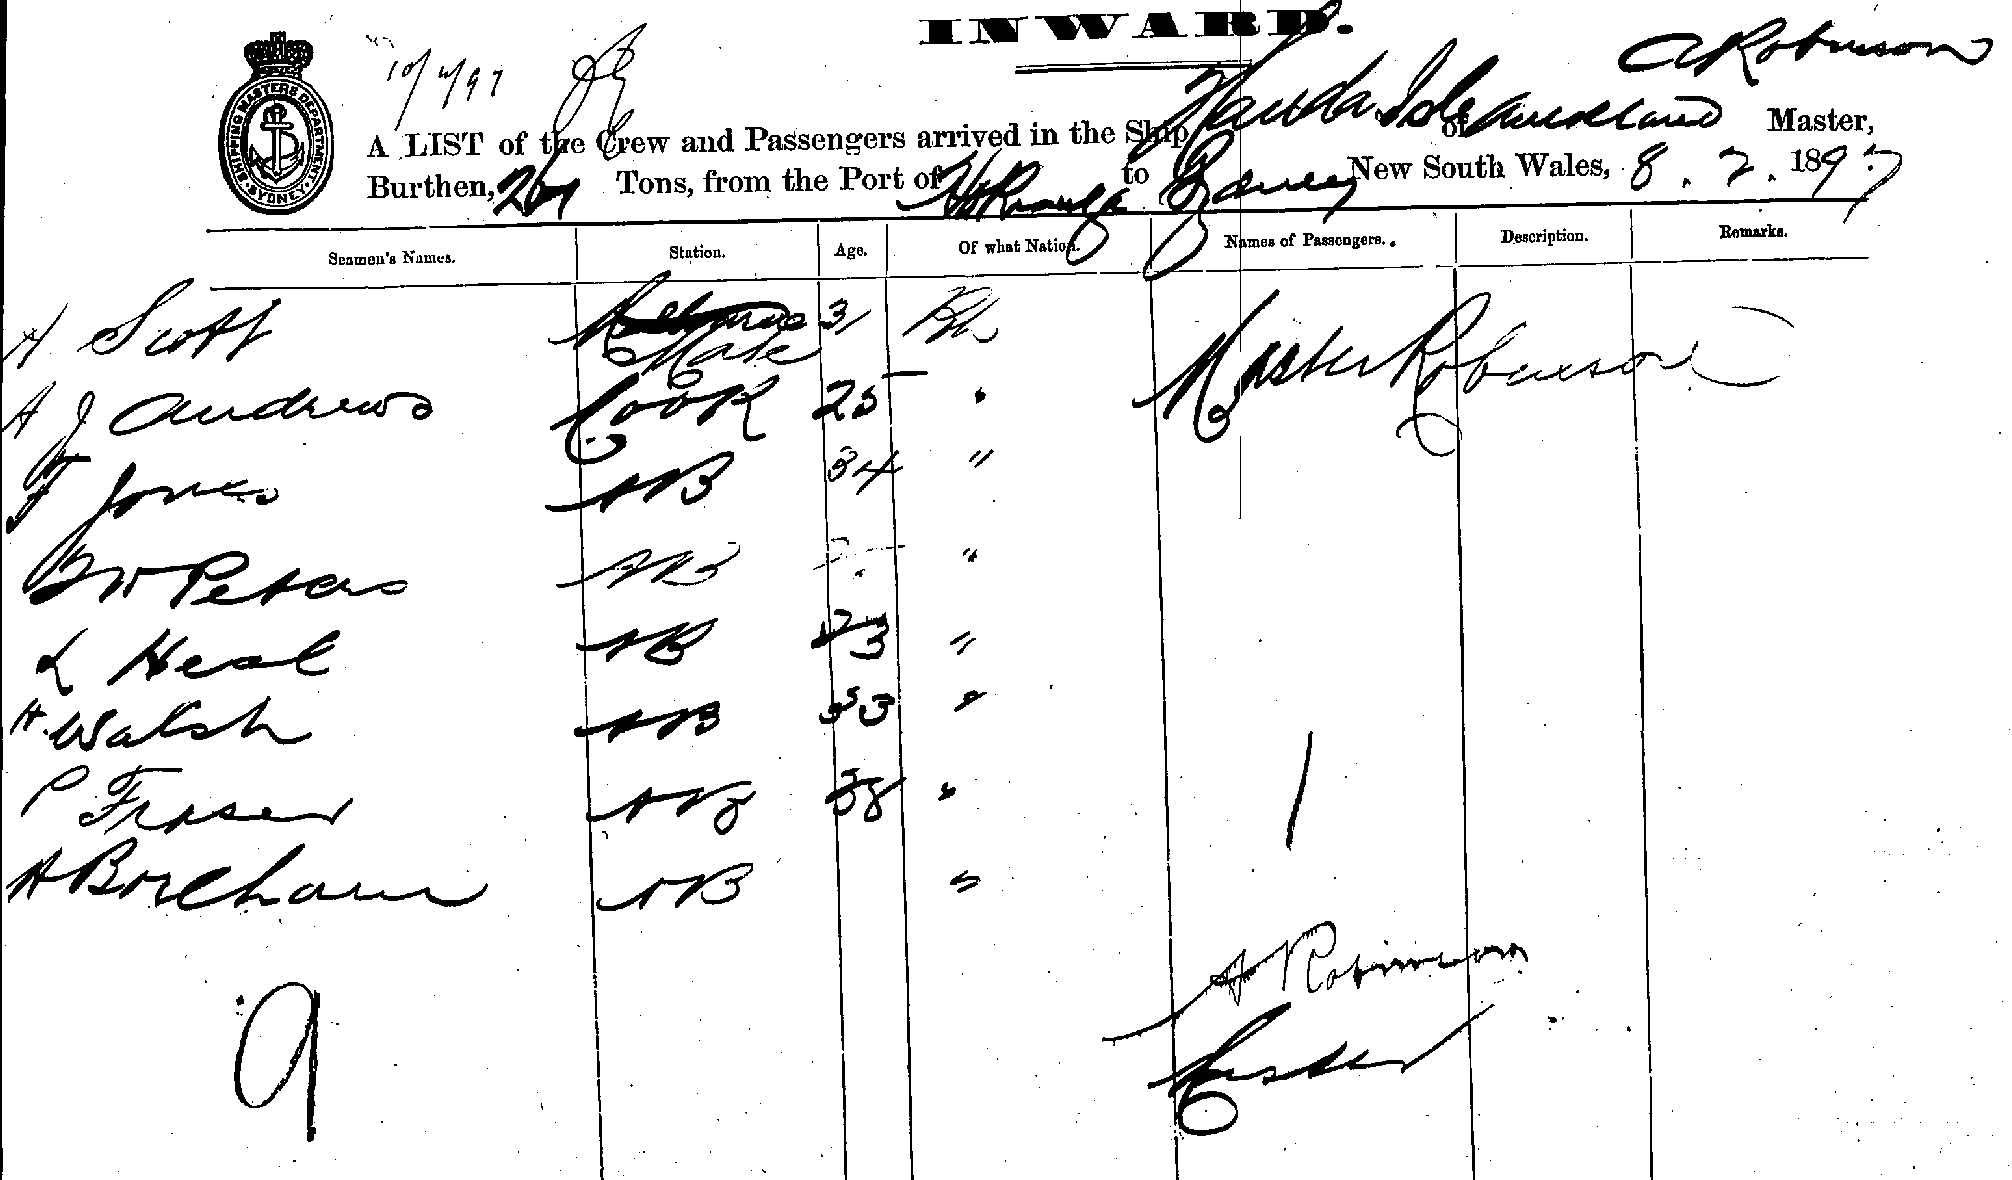 INWARD.
A Robinson
SHIPPING MASTERS DEPARTMENT. SYDNEY.
A LIST of the Crew and Passengers arrived in the Ship of Auckland Master,
Burthen, Tons, from the Port of Hokianga to Sydney New South Wales, 8.7.1897
Seamen's Names. Station. Age. Of what Nation. Names of Passengers. Description. Remarks.
A Scott Mate 31 Bh Master Robinson
A J Andrews Cook 25 "
F Jones AB 34 "
W Peters AB "
L Heal AB 23 "
H. Walsh AB 33 "
P Fraser AB 38 "
A Boreham AB "
1
A Robinson
Master
9